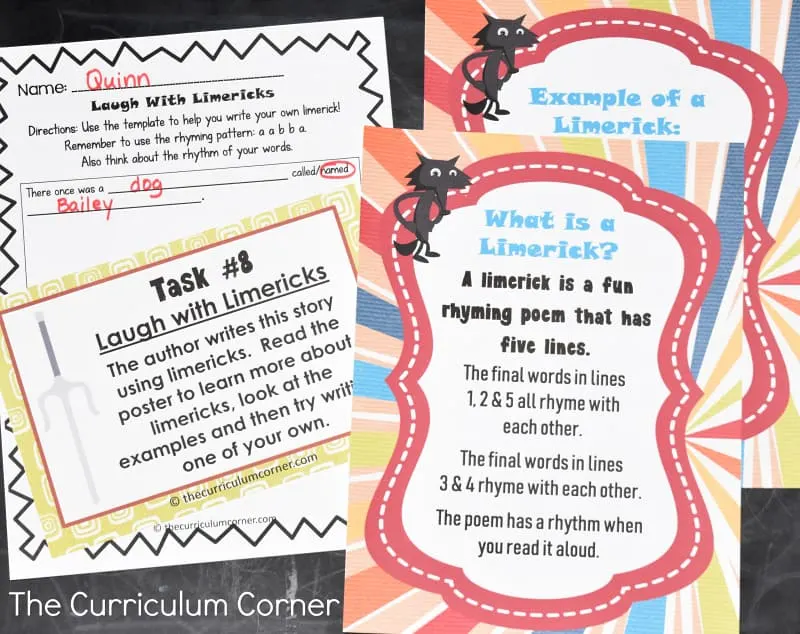 Name: Quinn
Laugh With Limericks
Directions: Use the template to help you write your own limerick!
Remember to use the rhyming pattern: a a b b a.
Also think about the rhythm of your words.
There once was a dog called/named
Bailey.
Task #8
Laugh with Limericks
The author writes this story
using limericks. Read the
poster to learn more about
limericks, look at the
examples and then try writi
one of your own.
© thecurriculumcorner.com
© thecurriculumcorner.com
Example of a
Limerick:
What is a
Limerick?
A limerick is a fun
rhyming poem that has
five lines.
The final words in lines
1, 2 & 5 all rhyme with
each other.
The final words in lines
3 & 4 rhyme with each other.
The poem has a rhythm when
you read it aloud.
The Curriculum Corner